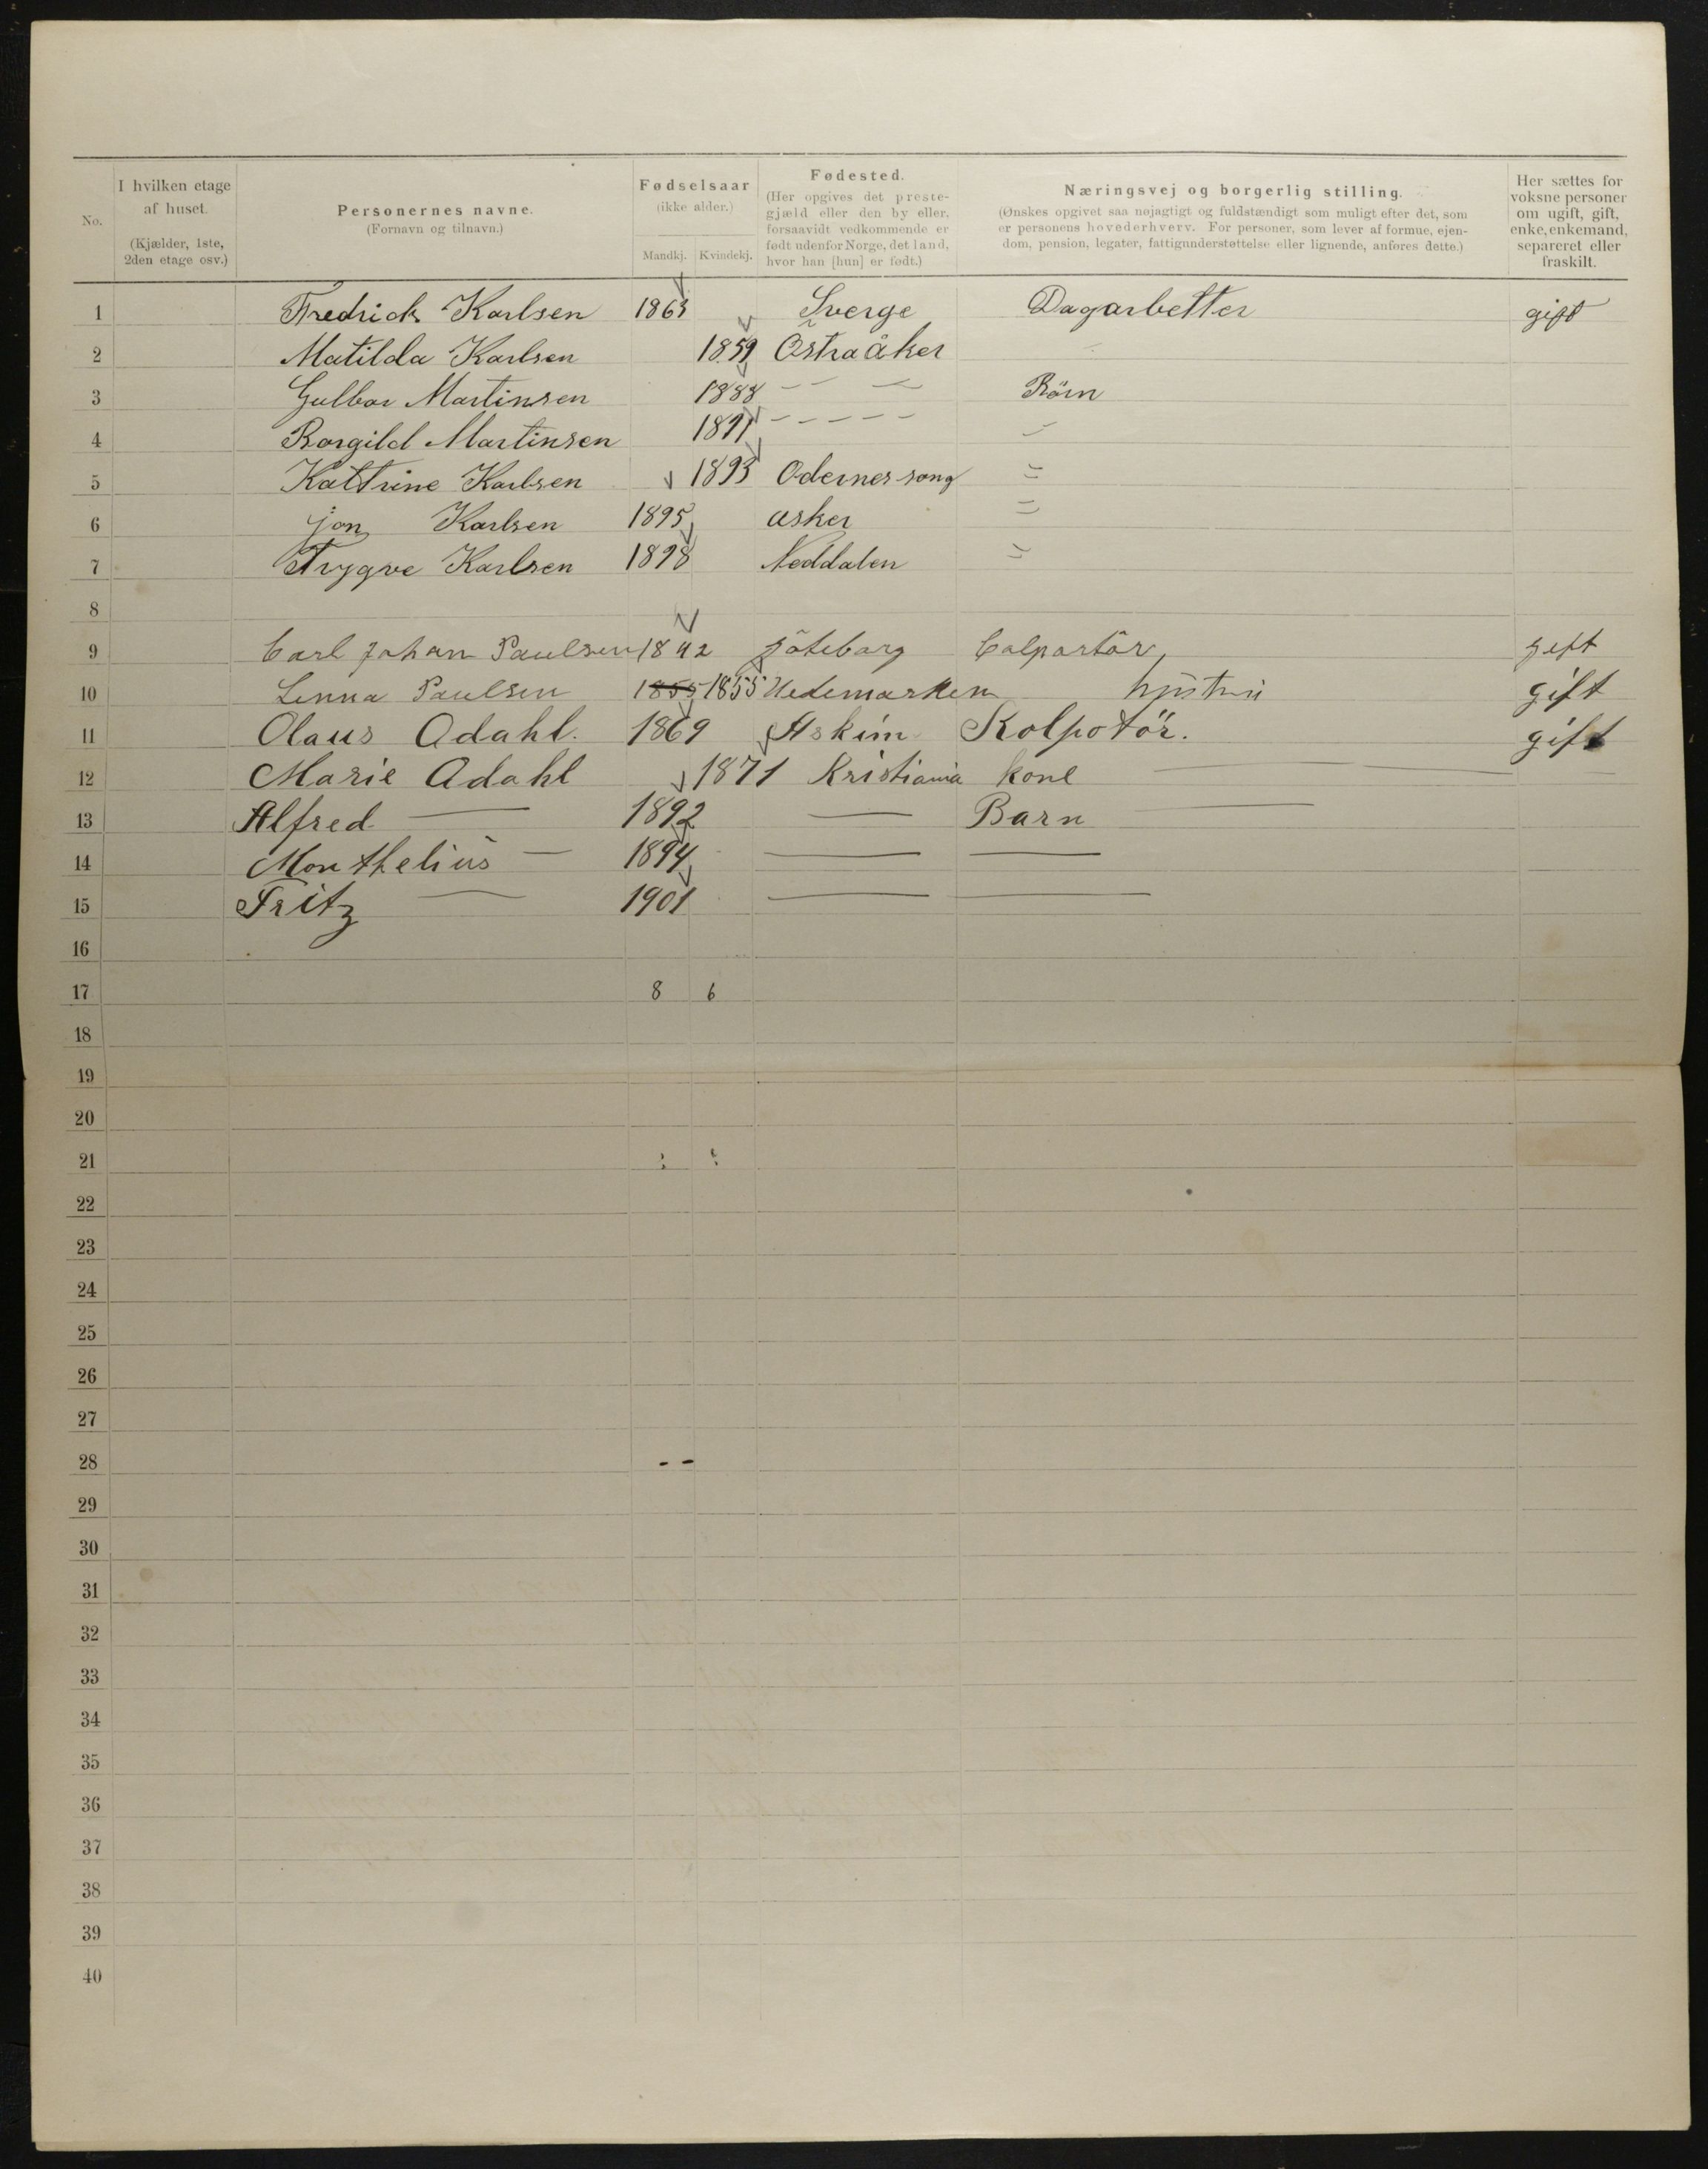 No.
I hvilken etage af huset.
(Kjælder, 1ste, 2den etage osv.)
Personernes navne.
(Fornavn og tilnavn.)
Fødselsaar
(ikke alder.)
Mandkj. Kvindekj.
Fødested.
(Her opgives det preste-
gjæld eller den by eller,
forsaavidt vedkommende er
født udenfor Norge, det land,
hvor han [hun] er født.)
Næringsvej og borgerlig stilling.
(Ønskes opgivet saa nøjagtigt og fuldstændigt som muligt efter det, som
er personens hovederhverv. For personer, som lever af formue, ejen-
dom, pension, legater, fattigunderstøttelse eller lignende, anføres dette.)
Her sættes for
voksne personer
om ugift, gift,
enke, enkemand,
separeret eller
fraskilt.
1 Fredrick Karlsen 1863 Sverge Dagarbetter gift
2 Matilda Karlsen 1859 Östraåker
3 Gulbor Martinsen 1888 — — Börn
4 Borgild Martinsen 1891 - - - - - -
5 Kattrine Karlsen 1893 Odernes sang "
6 jon Karlsen 1895 asker "
7 Trygve Karlsen 1898 Neddalen "
8
9 Carl Johan Paulsen 1842 Göteborg Colportör, gift
10 Lenna Paulsen 1855 1855 Hedemarken hüstru gift
11 Olaus Odahl. 1869 Askim Kolpotör. gift
12 Marie Odahl 1871 Kristiania kone —
13 Alfred — 1892 — Barn —
14 Monthelius — 1894 — —
15 Fritz — 1901 — —
16
17 8 6
18
19
20
21
22
23
24
25
26
27
28 - -
29
30
31
32
33
34
35
36
37
38
39
40